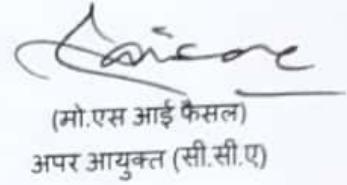 (मो.एस आई फैसल)
अपर आयुक्त (सी.सी.ए)